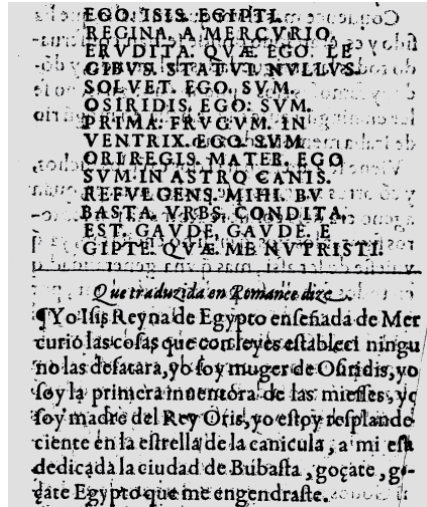 EGO. ISIS. EGIPTI.
REGINA. A MERCVRIO,
ERVDITA. QVÆ. EGO. LE
GIBVS. STATVI. NVLLVS.
SOLVET. EGO. SVM.
OSIRIDIS. EGO. SVM.
PRIMA. FRVGVM. IN
VENTRIX. EGO. SVM
ORIREGIS. MATER. EGO
SVM. IN ASTRO CANIS.
REFVLGENS. MIHI. BV
BASTA. VRBS. CONDITA,
EST. GAVDE, GAVDE. E
GIPTE. QVÆ. ME NVTRISTI.
Que traduzida en Romance dize
¶Yo Isis Reyna de Egypto enseñada de Mer
curio las cosas que con leyes establecí ningu
no las desatara, yo soy muger de Osiridis, yo
soy la primera inuentora de las miesses, yo
soy madre del Rey Oris, yo estoy resplande
ciente en la estrella de la canicula, a mi està
dedicada la ciudad de Bubasta, goçate, go-
çate Egypto que me engendraste.